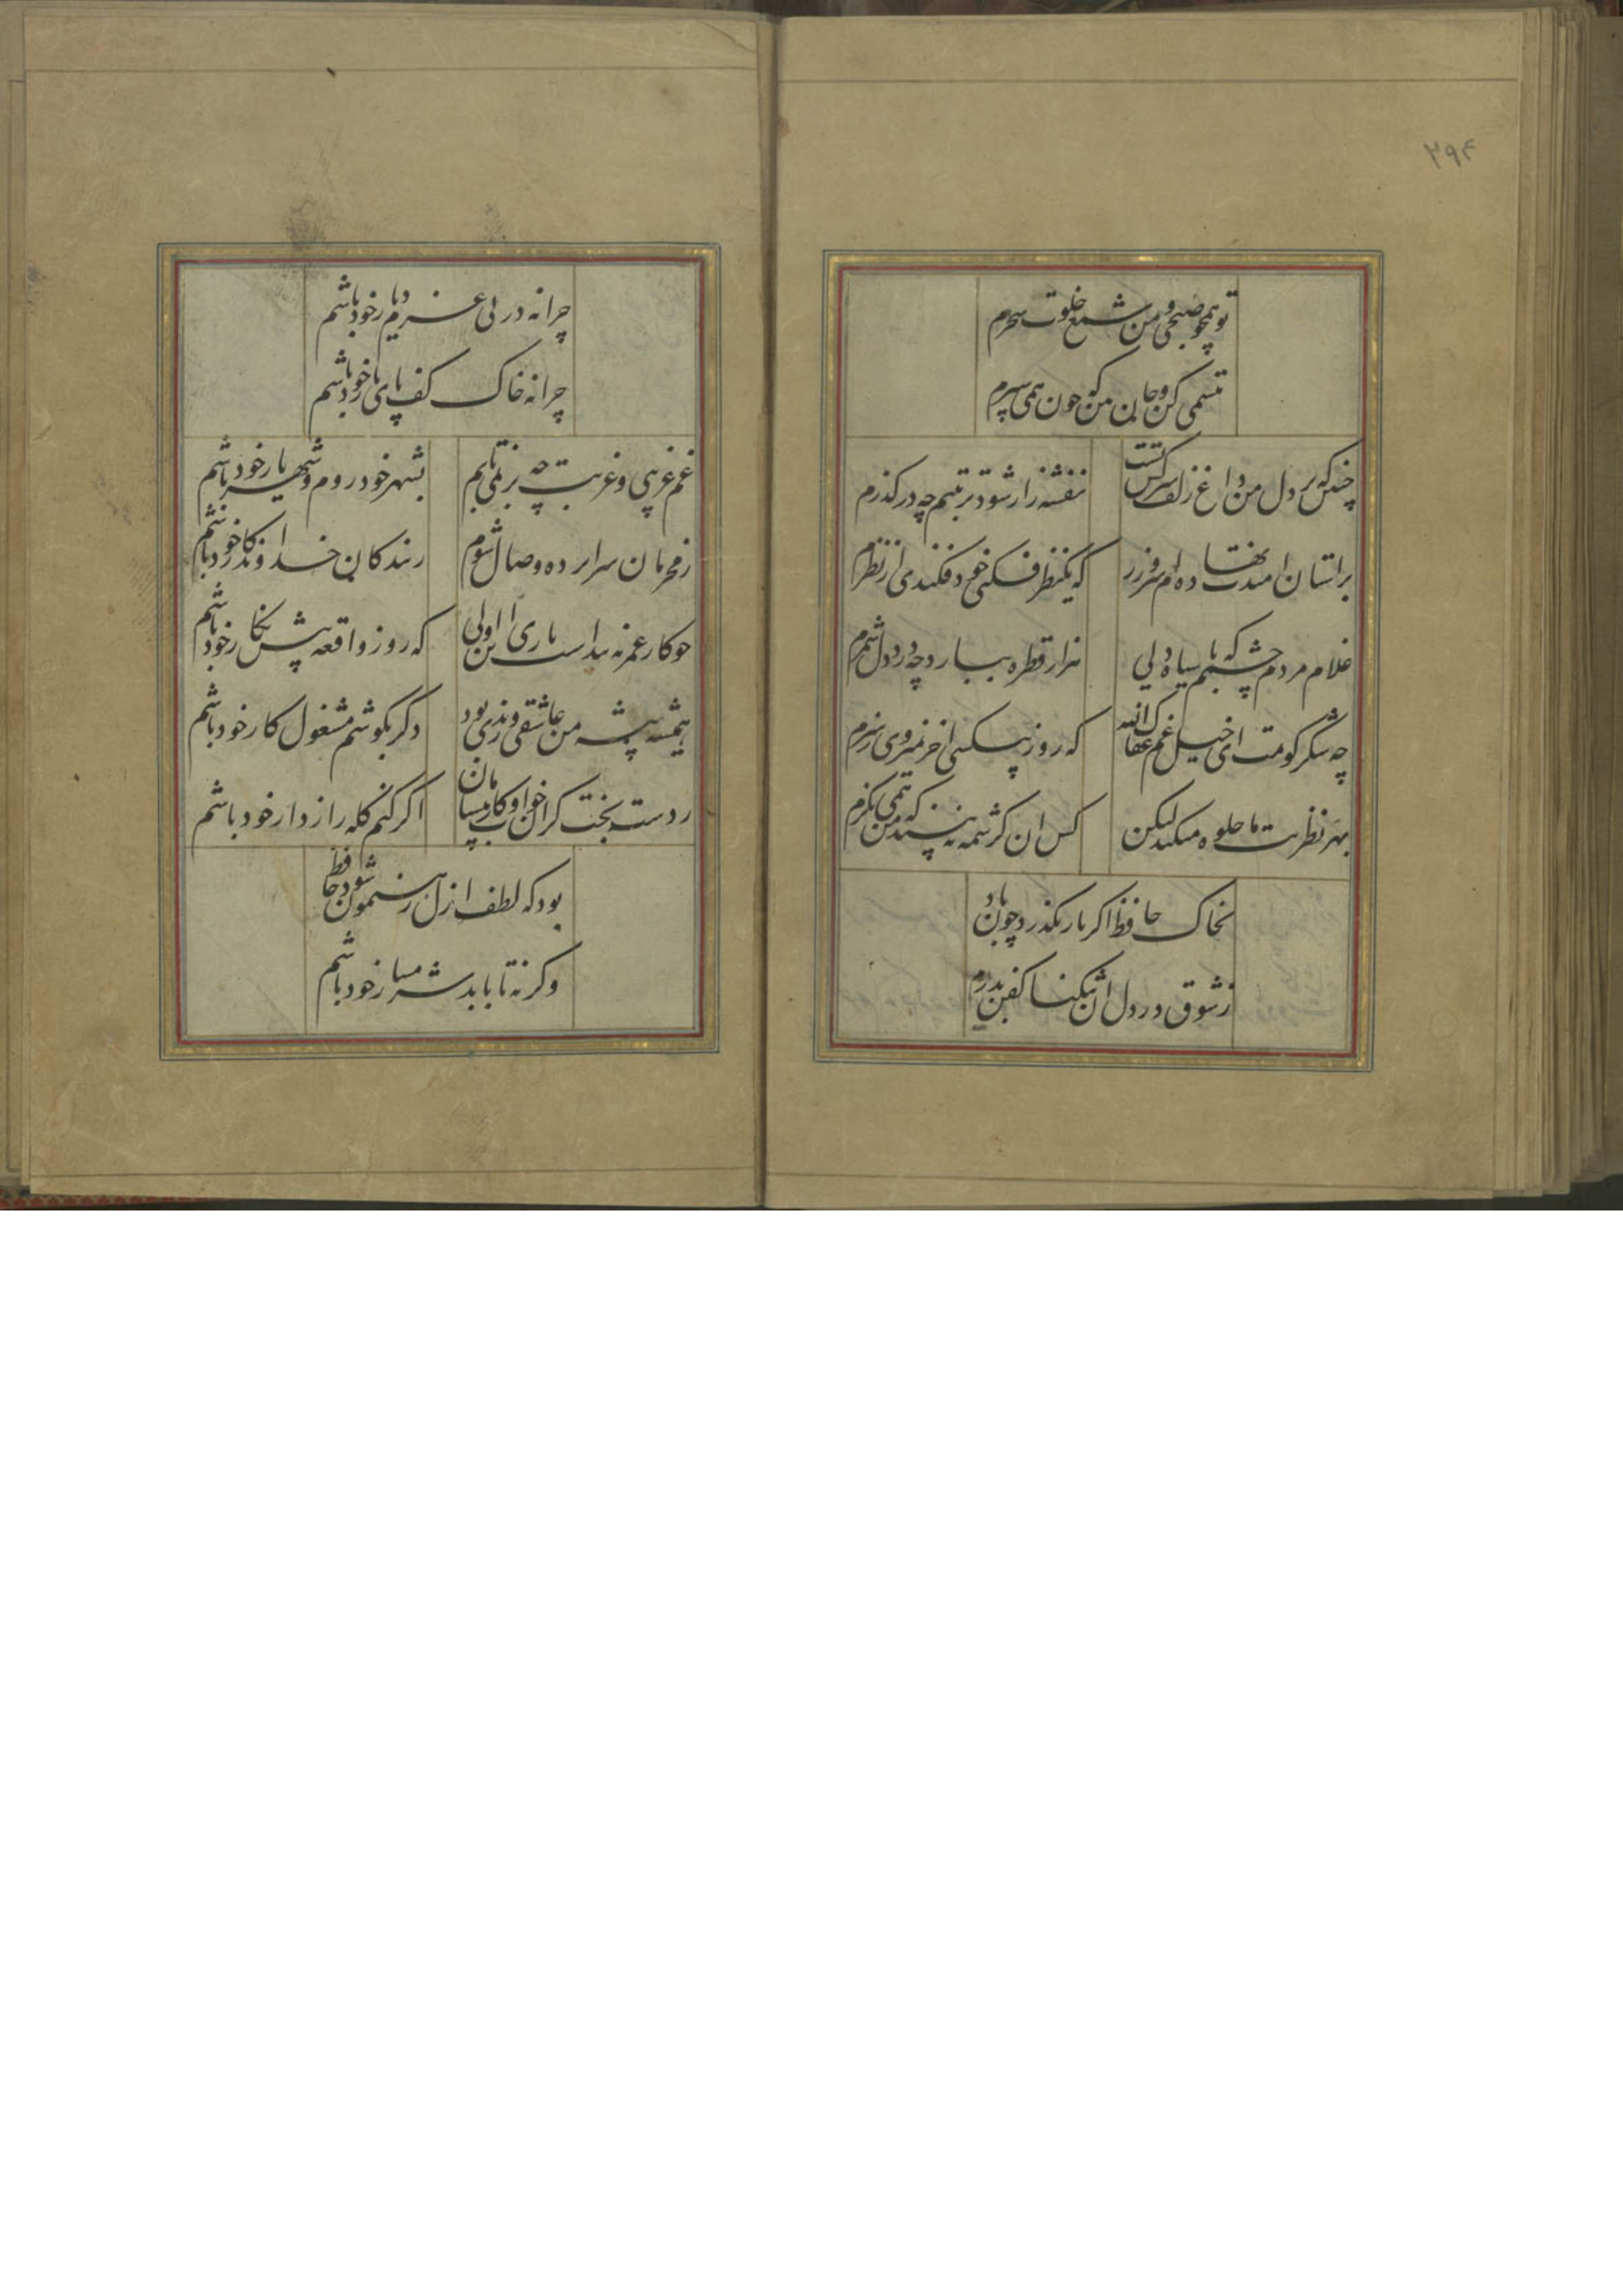 ۲۹۴
تو همچو صبحی و من شمع خلوت سحرم
تبسمی کن و جان من که چون همی سپرم
چنین که بر دل من داغ زلف سرکش تست
بنفشه زار شود تربتم چه درگذرم
بر استان امیدت نهاده ام سر و زر
که یکنظر فکنی خود فکندی از نظرم
غلام مردم چشمم که با سیاه دلی
هزار قطره ببارد چه درد دل شمرم
چه شکر گویمت ای خیل غم عفاک الله
که روز بیکسی اخر نمیروی ز سرم
بهر نظر بت ما جلوه میکند لیکن
کس ان کرشمه نبیند که من همی نگرم
بخاک حافظ اگر یار بگذرد چون باد
ز شوق در دل ان تنگنا کفن بدرم
چرا نه در پی عزم دیار خود باشم
چرا نه خاک کف پای یار خود باشم
غم غریبی و غربت چه بر نمی تابم
بشهر خود روم و شهریار خود باشم
ز محرمان سراپرده وصال شوم
ز بندکان خداوندکار خود باشم
چو کار عمر نه پیداست باری ان اولی
که روز واقعه پیش نکار خود باشم
همیشه پیشه من عاشقی و رندی بود
دکر بکوشم مشغول کار خود باشم
ز دست بخت کران خواب و کار بیسامان
اکر کنم کله راز دار خود باشم
بود که لطف ازل رهنمون شود حافظ
وکرنه تا بابد شرمسار خود باشم